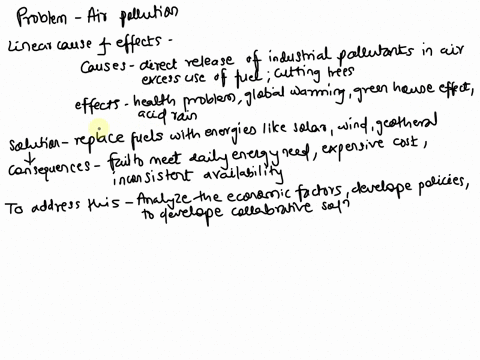 Problem - Air pollution
Linear cause & effects -
causes - direct release of industrial pollutants in air
excess use of fuel; cutting trees
effects - health problem, global warming, green house effect,
acid rain
solution - replace fuels with energies like solar, wind, geotheral
↓
consequences - fail to meet daily energy need, expensive cost,
inconsistent availability
To address this - Analyze the economic factors, develope policies,
to develope collabrative sol?